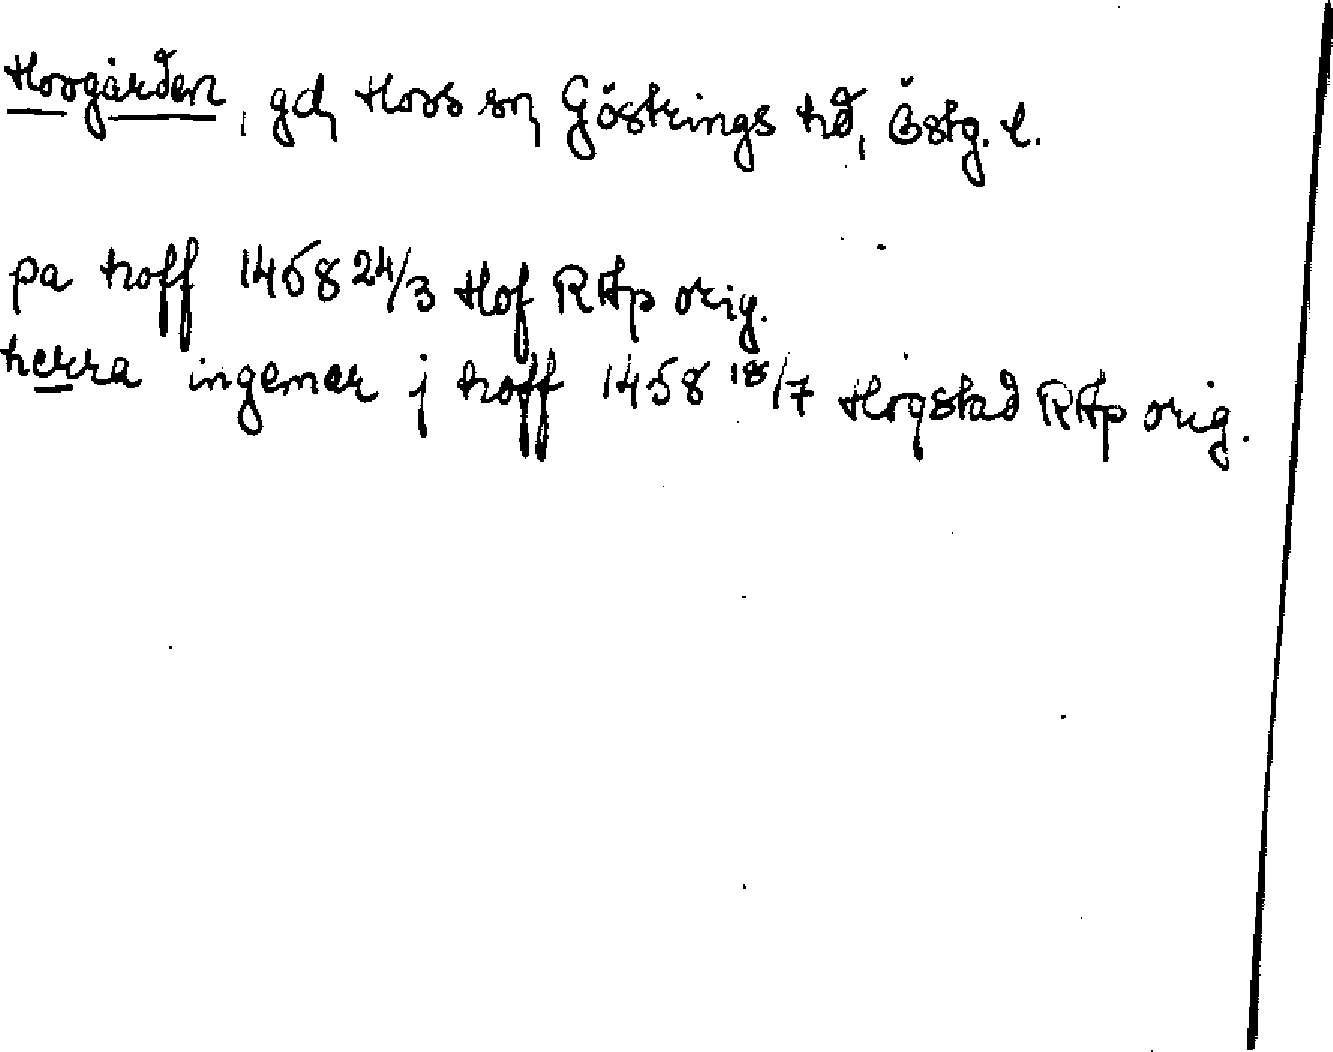 Hovgården, gd, Hovs sn, Göstrings hd, Östg. l.
pa hoff 1458 24/3 Hof RAp orig.
herra ingemar j hoff 1458 18/7 Hogstad RAp orig.